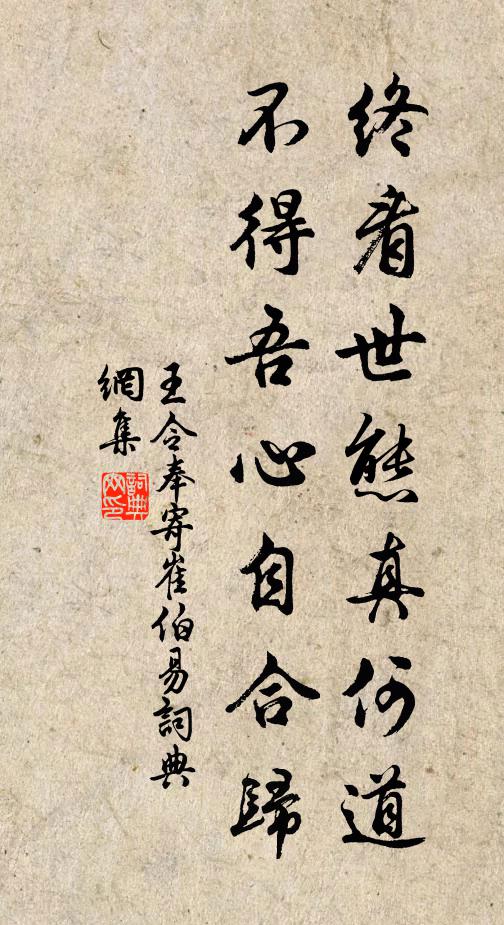 終看世態真何道
不得吾心自合歸
王令奉寄崔伯易詞典
網集
詞典
網印